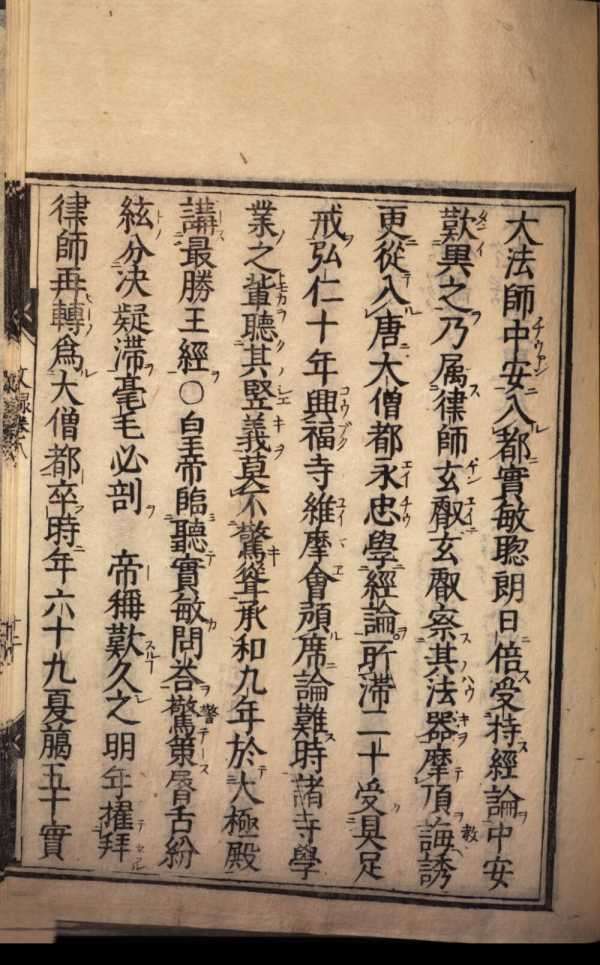 大法師中安入都實敏聡朗日倍受持經論中安
歎異之乃属律師玄叡玄叡察其法器摩頂誨誘
更從入唐大僧都永忠學經論所滞二十受具足
戒弘仁十年興福寺維摩會預席論難時諸寺學
業之輩聽其竪義莫不驚從承和九年於大極殿
講最勝王經○皇帝臨聽實敏問荅驚策脣舌紛
紜分决疑滞毫毛必剖　帝稱歎久之明年擢拜
律師再轉爲大僧都卒時年六十九夏臈五十實